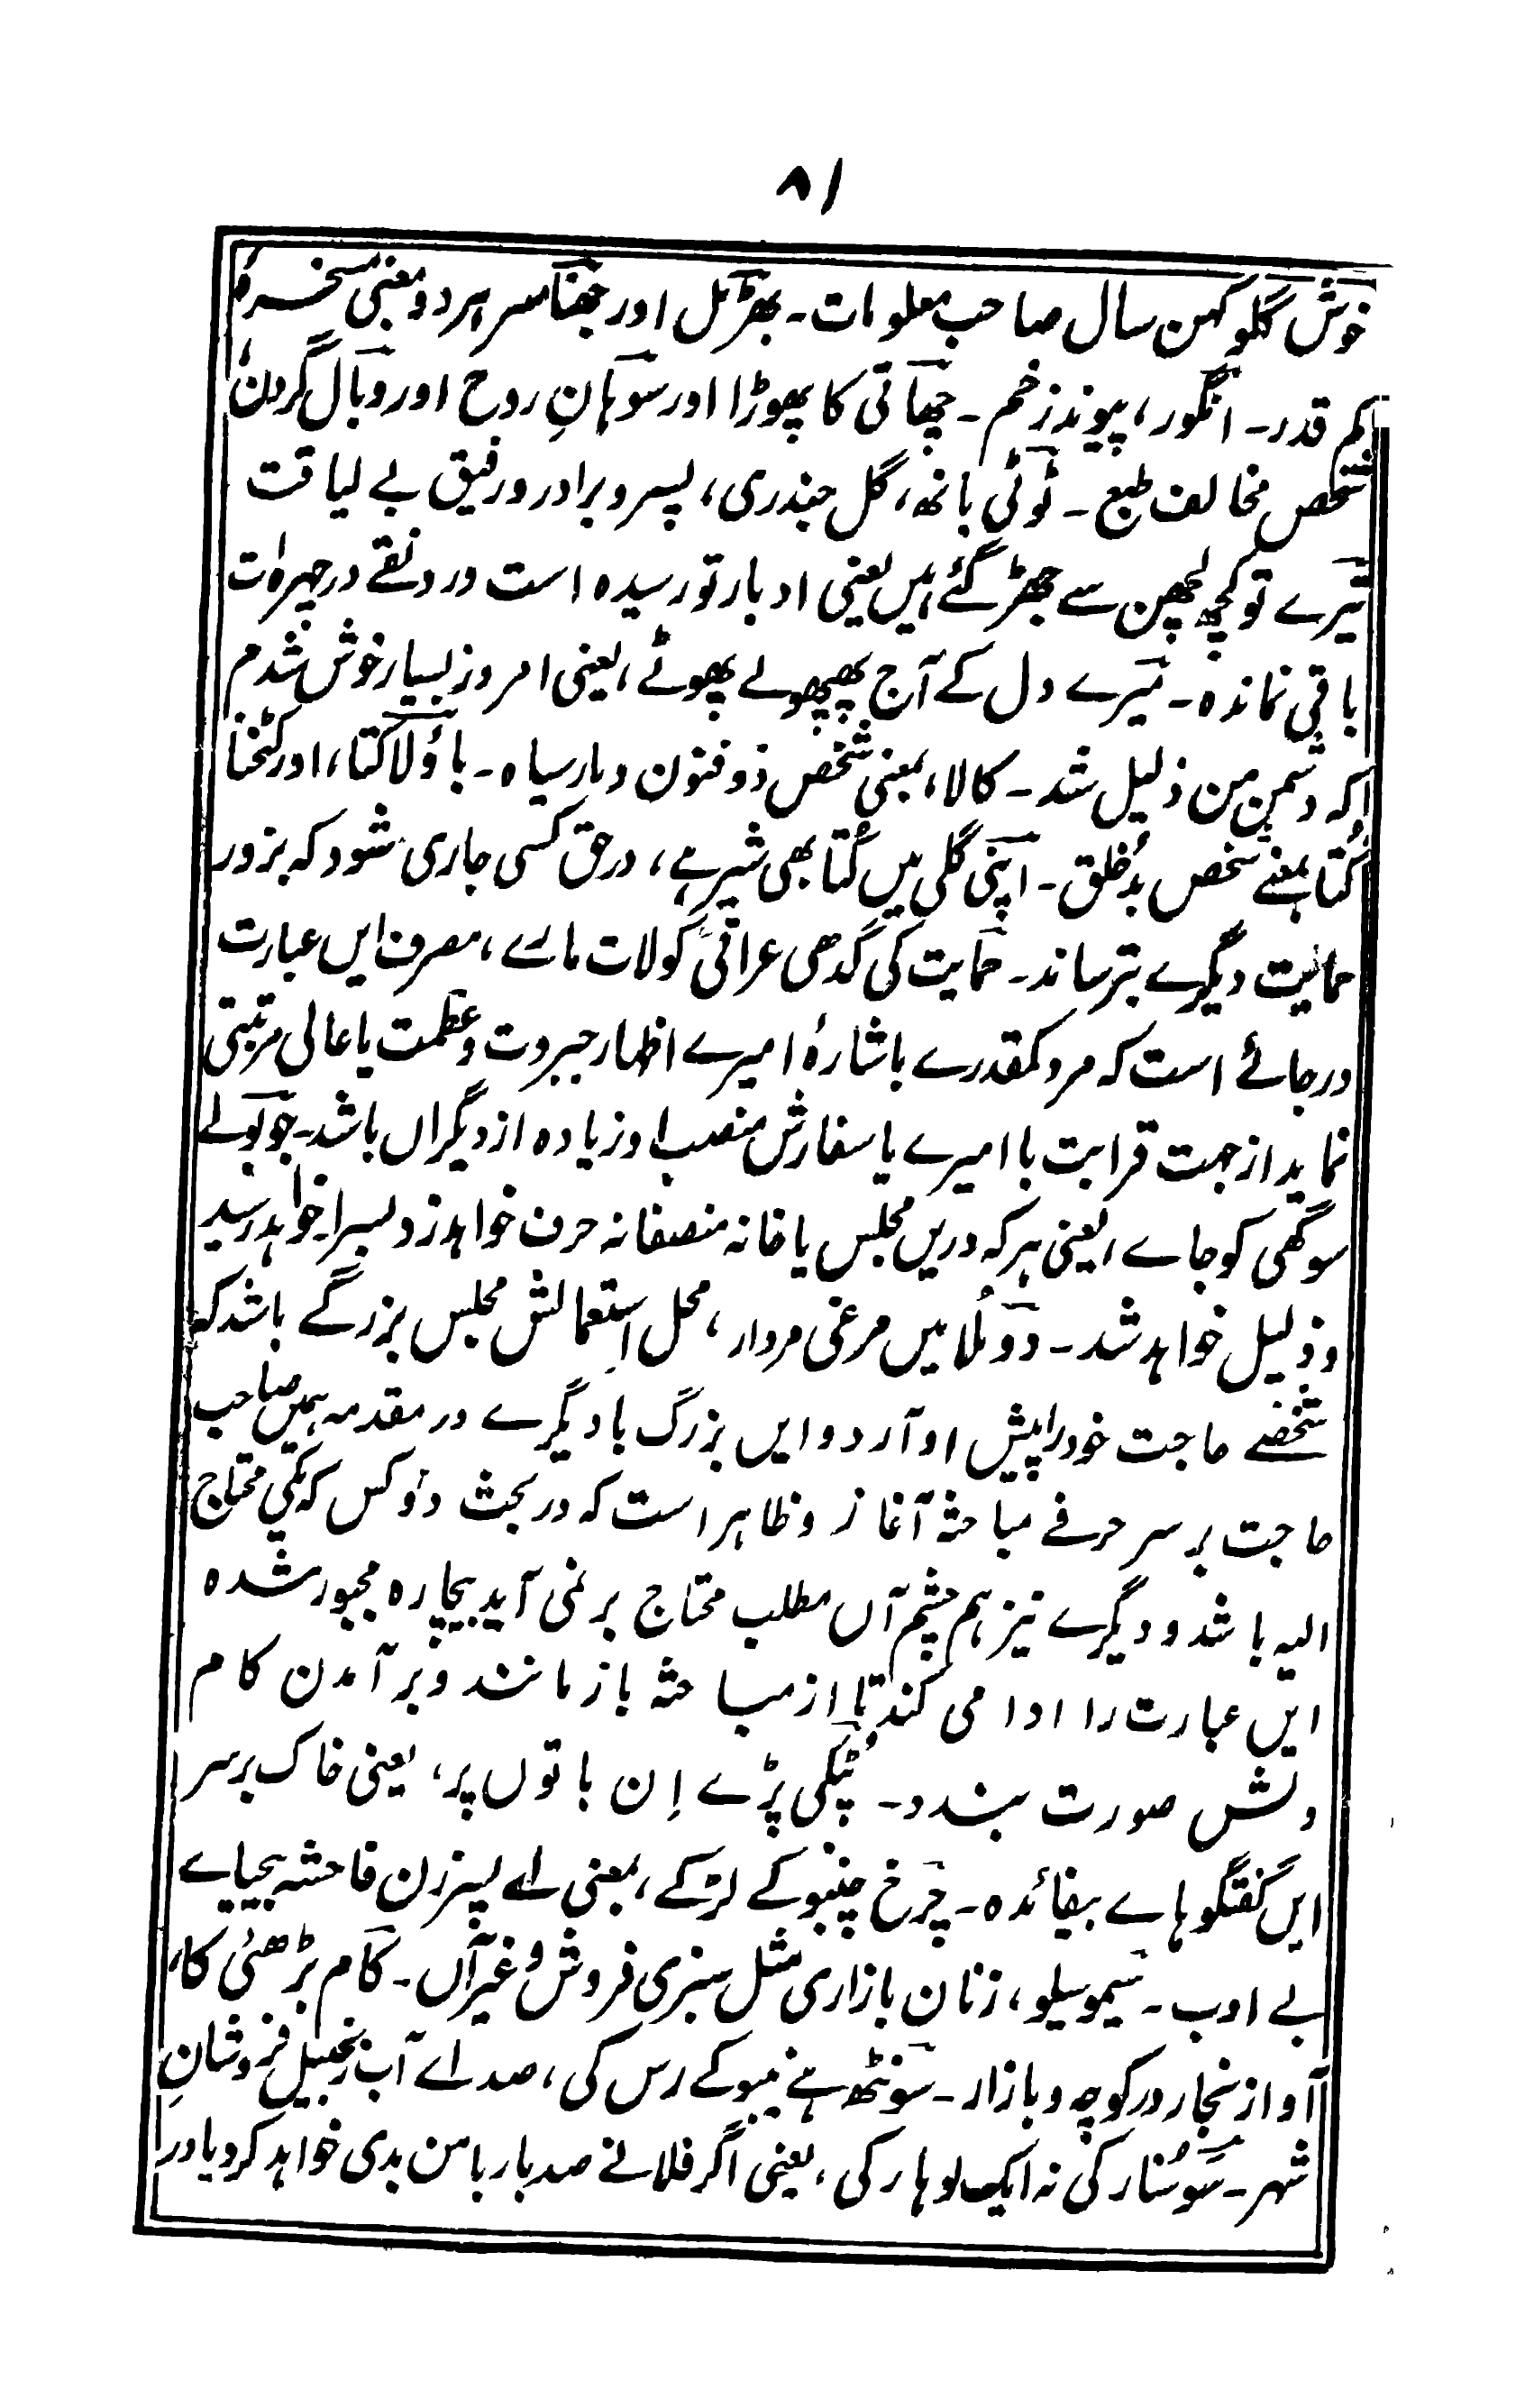 ۸۱
خوش گلو کہن سال صاحب معلومات۔ بھڑیل اور جھنا سر ہر دو معنیٔ مسخرہ
کم قدر۔ انگور، پیوند زخم۔ چھاتی کا پھوڑا اور سوہانِ روح اور وبال گردن
شخص مخالف طبع۔ ٹوٹی بانھ، گل جندری، پسر و برادر و رفیق بے لیاقت
تیرے تو کچھ لچھن سے جھڑ گئے ہیں یعنی ادبار تو رسیدہ است و رونقے در چہرہ ات
باقی نماندہ۔ میرے دل کے آج پھپھولے پھوٹے، یعنی امروز بسیار خوش شدم
کہ دشمن من ذلیل شد۔ کالا، بمعنی شخص ذو فنون و مار سیاہ۔ باؤلا کتا، اور کٹخنا
کُتا بمعنے شخص بدُخلق۔ اپنی گلی میں کُتا بھی شیر ہے، در حق کسی جاری شود کہ بزور
حمایت دیگرے بترساند۔ حمایت کی گدھی عراقی کو لات مارے، مصرف ایں عبارت
در جائے است کہ مرد کمقدرے باشارۂ امیرے اظہار جبروت و عظمت یا عالی مرتبتی
نماید از جہت قرابت با امیرے یا سفارش منصب او زیادہ از دیگراں باشد۔ جو بولے
سو گھی کو جاے، یعنی ہر کہ دریں مجلس یا خانہ منصفانہ حرف خواہد زد بسزا خواہد رسید
و ذلیل خواہد شد۔ دو مُلا میں مرغی مردار، محل استعمالش مجلس بزرگے باشد کہ
شخصے حاجت خود را پیش او آرد و ایں بزرگ با دیگرے در مقدمہ ہمیں صاحب
حاجت بر سر حرفے مباحثہ آغاز و ظاہر است کہ در بحث دو کس کہ یکی محتاج
الیہ باشد و دیگرے نیز ہم چشم آں مطلب محتاج بر نمی آید بیچارہ مجبور شدہ
ایں عبارت را ادا می کند تا از مباحثہ باز مانند و بر آمدن کام
دلش صورت بندد۔ پُٹکی پڑے اِن باتوں پر، یعنی خاک بر سر
ایں گفتگو ہاے بیفائدہ۔ چرخ چنبو کے لڑکے، بمعنی اے پسر زن فاحشہ بیحیاے
بے ادب۔ سیمو سیلو، زنان بازاری مثل سبزی فروش و غیر آں۔ کام بڑھئی کا،
آواز نجار در کوچہ و بازار۔ سونٹھ ہے نیبو کے رس کی، صداے آب زنجبیل فروشانِ
شہر۔ سو سُنار کی نہ ایک لوہار کی، یعنی اگر فلانے صد بار با من بدی خواہد کرد یا در